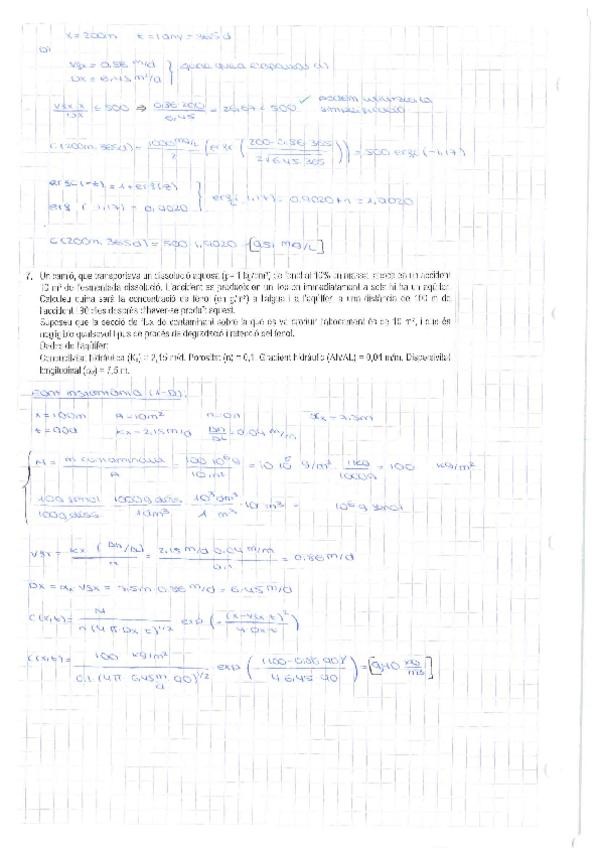 x = 200m t = 1 any = 365 d
b)
vgx = 0,86 m/d
Dx = 6,45 m²/d } 
vgx x / Dx < 500 ⇒ 0,86·200 / 6,45 = 26,67 < 500 ✓ podem utilitzar la simplificació
c(200m, 365d) = 1000 mg/L / 2 (erfc (200 - 0,86·365 / 2√6,45·365)) = 500 erfc(-1,17)
erfc(-z) = 1 + erf(z)
erf(1,17) = 0,9020 } erfc(-1,17) = 0,9020 + 1 = 1,9020
c(200m, 365d) = 500·1,9020 = [951 mg/L]
7. Un camió, que transportava un dissolució aquosa (ρ = 1 kg/dm³) de fenol al 10% en massa, aboca en un accident
10 m³ de l'esmentada dissolució. L'accident es produeix en un lloc on immediatament a sota hi ha un aqüífer.
Calculeu quina serà la concentració de fenol (en g/m³) a l'aigua i a l'aqüífer a una distància de 100 m de
l'accident 90 dies després d'haver-se produït aquest.
Suposeu que la secció de flux de contaminant sobre la que es va produir l'abocament és de 10 m², i que és
negligible qualsevol tipus de procés de degradació i retenció del fenol.
Dades de l'aqüífer:
Conductivitat hidràulica (Kx) = 2,15 m/d. Porositat (n) = 0,1. Gradient hidràulic (Δh/ΔL) = 0,04 m/m. Dispersivitat
longitudinal (αx) = 7,5 m.
Font instantània (1-D):
x = 100m A = 10m² n = 0,1 αx = 7.5m
t = 90d Kx = 2.15 m/d Δh/ΔL = 0.04 m/m
M = m contaminant / A = 100·10⁶ g / 10 m² = 10·10⁶ g/m² · 1 kg / 1000 g = 100 kg/m²
10 g fenol / 100 g diss · 1000 g diss / 1 dm³ · 10³ dm³ / 1 m³ · 10 m³ = 10⁶ g fenol
vgx = Kx (Δh/ΔL) / n = 2,15 m/d 0,04 m/m / 0,1 = 0,86 m/d
Dx = αx vgx = 7,5m 0,86 m/d = 6,45 m²/d
c(x,t) = M / n (4π Dx t)^1/2 exp (- (x - vgx t)² / 4 Dx t)
c(x,t) = 100 kg/m² / 0,1 (4π 6,45 m/d 90)^1/2 exp (- (100 - 0,86 90)² / 4 6,45 90) = [9,40 kg/m³]